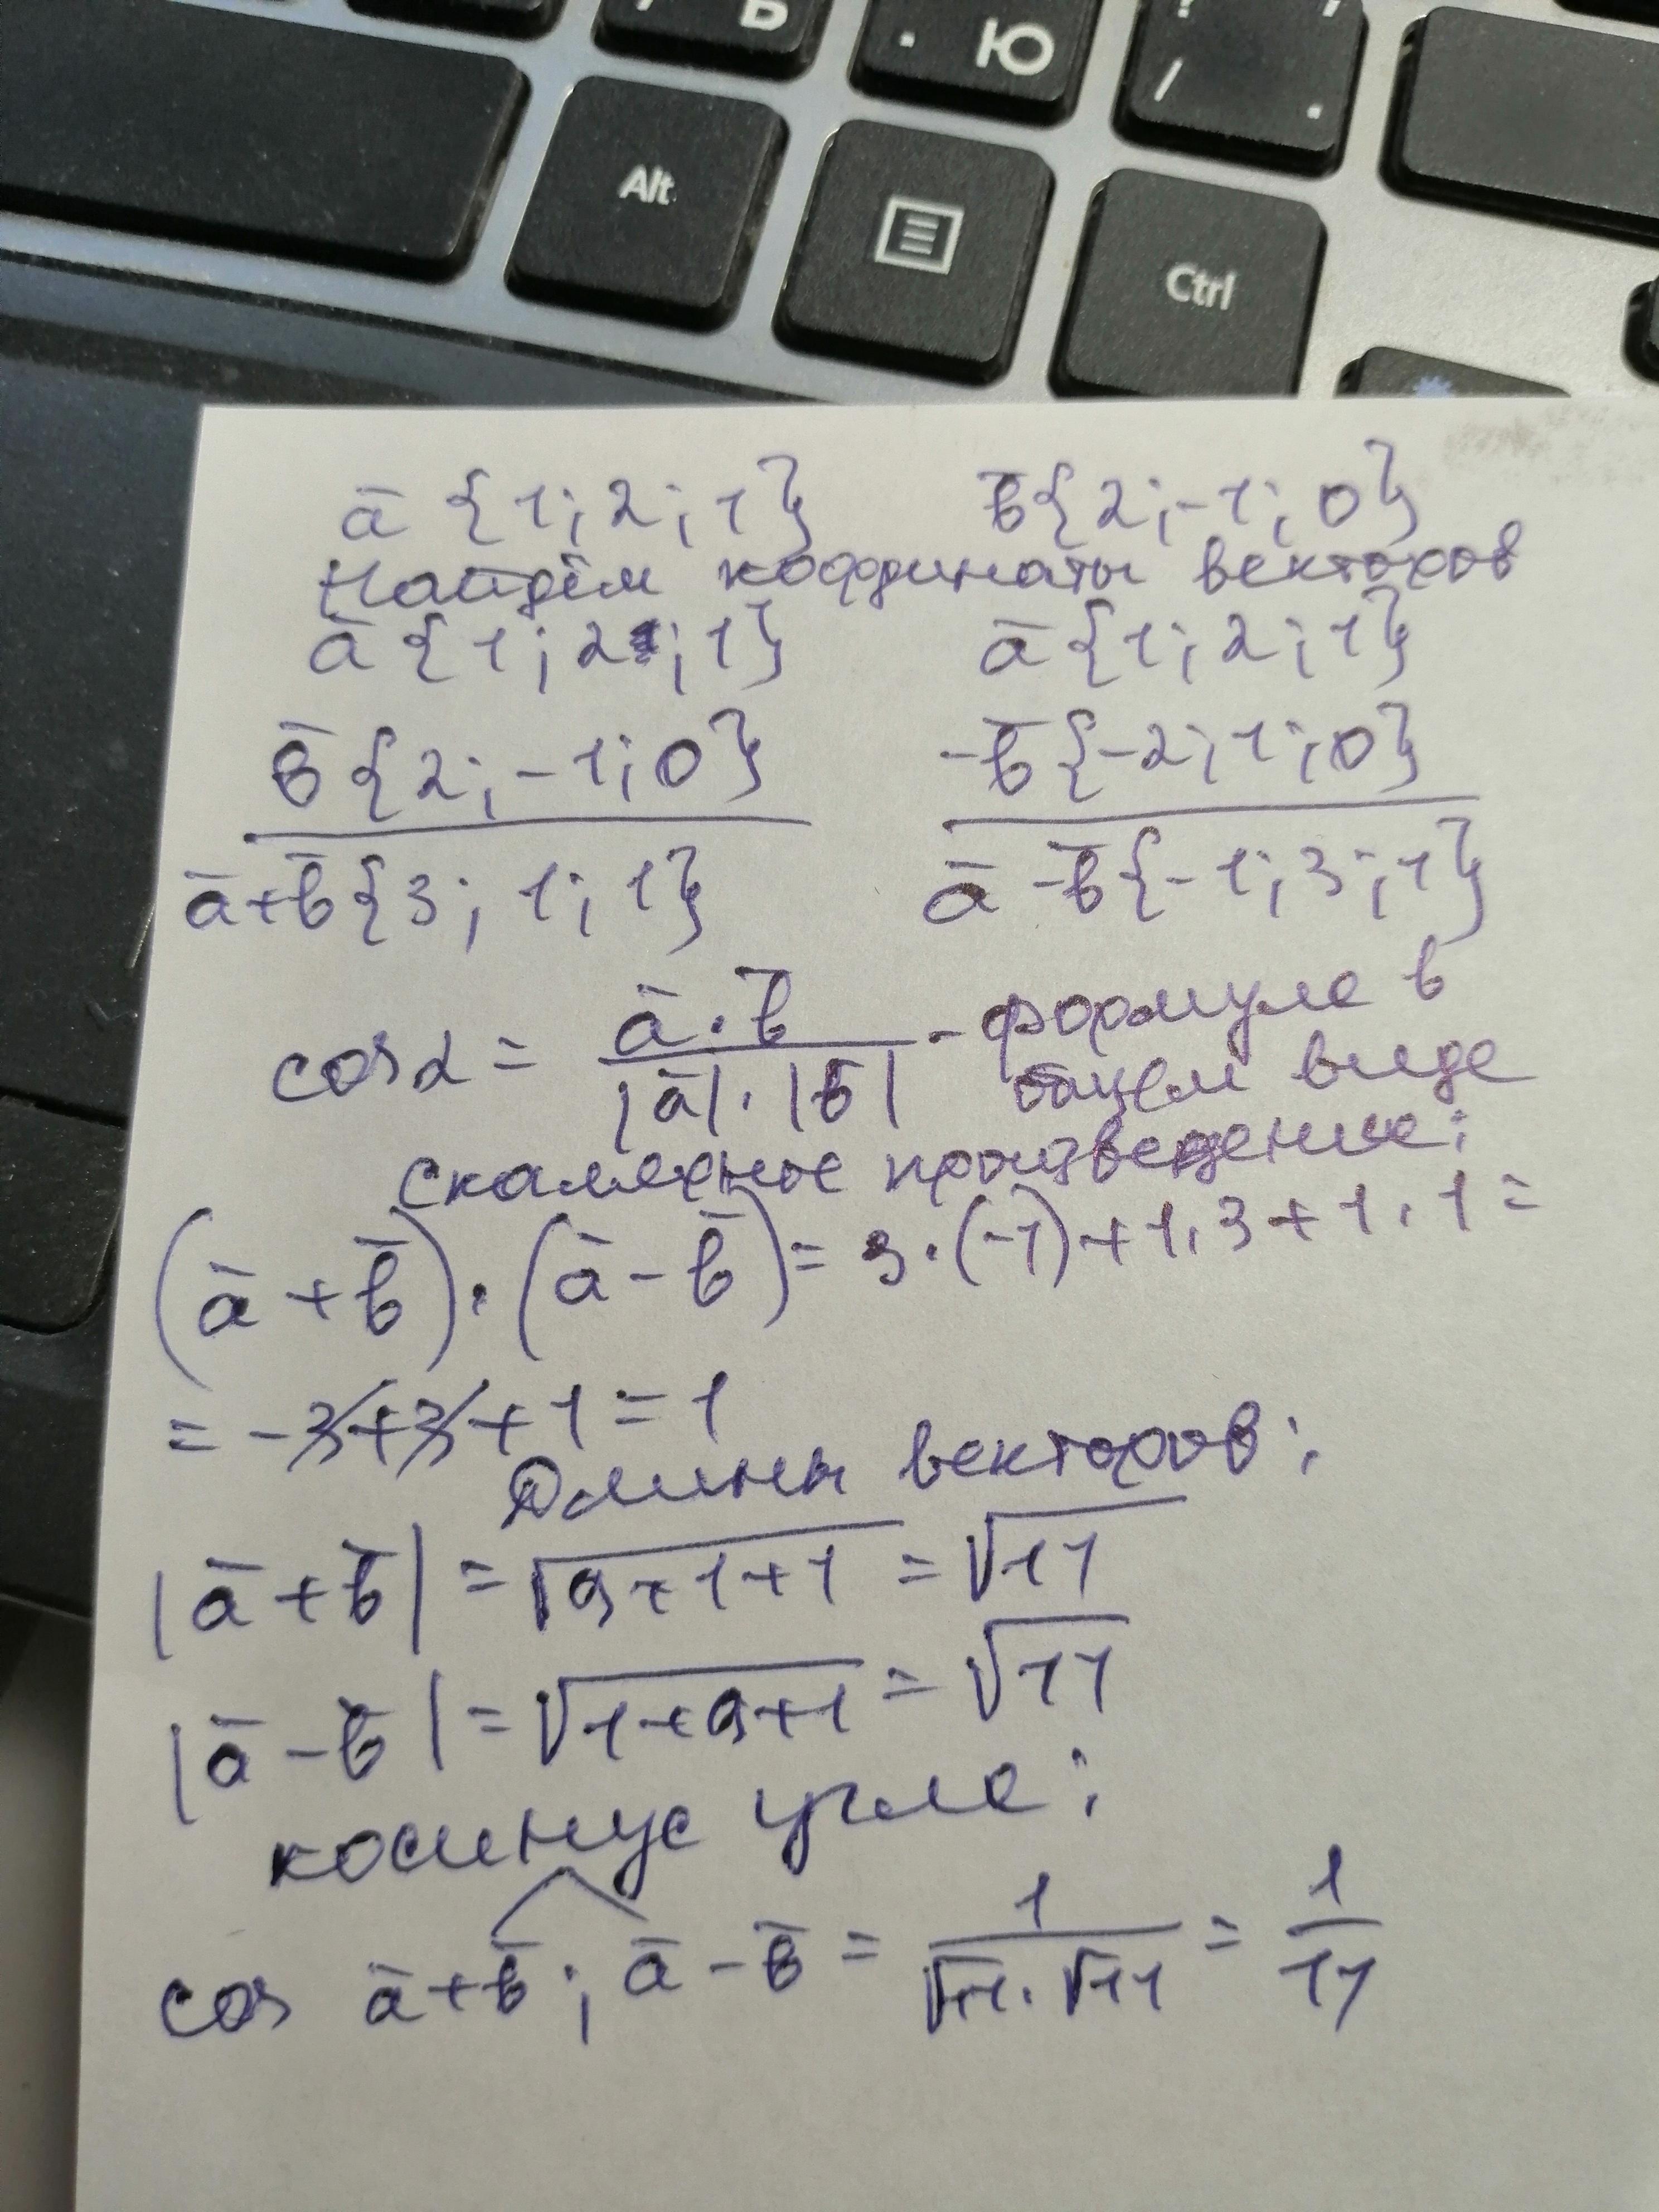 , Ь
. Ю
? ,
/ .
Alt
Ctrl
ā {1; 2; 1} b̄{2; -1; 0}
Найдём координаты векторов
ā {1; 2; 1} ā {1; 2; 1}
b̄ {2; -1; 0} -b̄ {-2; 1; 0}
ā+b̄ {3; 1; 1} ā -b̄ {-1; 3; 1}
cos α = ā · b̄ / |ā| · |b̄| - формула в
общем виде
скалярное произведение:
(ā + b̄) · (ā - b̄) = 3 · (-1) + 1 · 3 + 1 · 1 =
= -3 + 3 + 1 = 1
Длины векторов:
|ā + b̄| = √9+1+1 = √11
|ā - b̄| = √1+9+1 = √11
косинус угла:
cos ā+b̄ ; ā - b̄ = 1 / √11 · √11 = 1 / 11